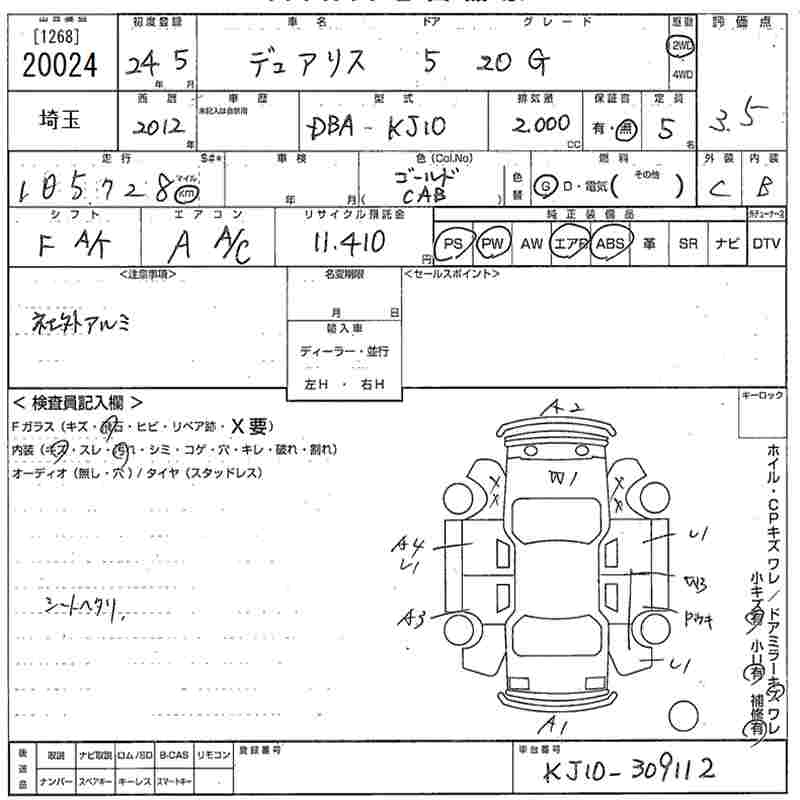 [1268]
20024
初度登録 車名 ドア グレード 駆動 評価点
24 年 5 月 デュアリス 5 20 G 2WD 4WD
埼玉 西暦 車歴 型式 排気量 保証書 定員
未記入は自家用
2012年 DBA - KJ10 2.000 CC 有・無 5 名 3.5
走行 S#* 車検 色(Col.No) 色替 燃料 外装 内装
105,728 マイル km 年 月 ( ゴールド CAB ) G D・電気( その他 ) C B
シフト エアコン リサイクル預託金 純正装備品
F A/T A A/C 11.410 円 PS PW AW エアB ABS 革 SR ナビ DTV
<注意事項> 名変期限 <セールスポイント>
月 日
社外アルミ
輸入車
ディーラー・並行
左H ・ 右H
< 検査員記入欄 > キーロック
Fガラス (キズ・飛石・ヒビ・リペア跡・X要)
内装 (キズ・スレ・汚れ・シミ・コゲ・穴・キレ・破れ・割れ)
オーディオ (無し・穴) / タイヤ (スタッドレス)
シートヘタリ,
A2
W1
X X
X X
A4
U1
U1
W3
A3
U1
A1
ホイル・CPキズ ワレ / ドアミラーキズ ワレ
小キズ有 小U有 補修有
後送品 取説 ナビ取説 ロム/SD B-CAS リモコン 登録番号 車台番号
ナンバー スペアキー キーレス スマートキー KJ10-309112